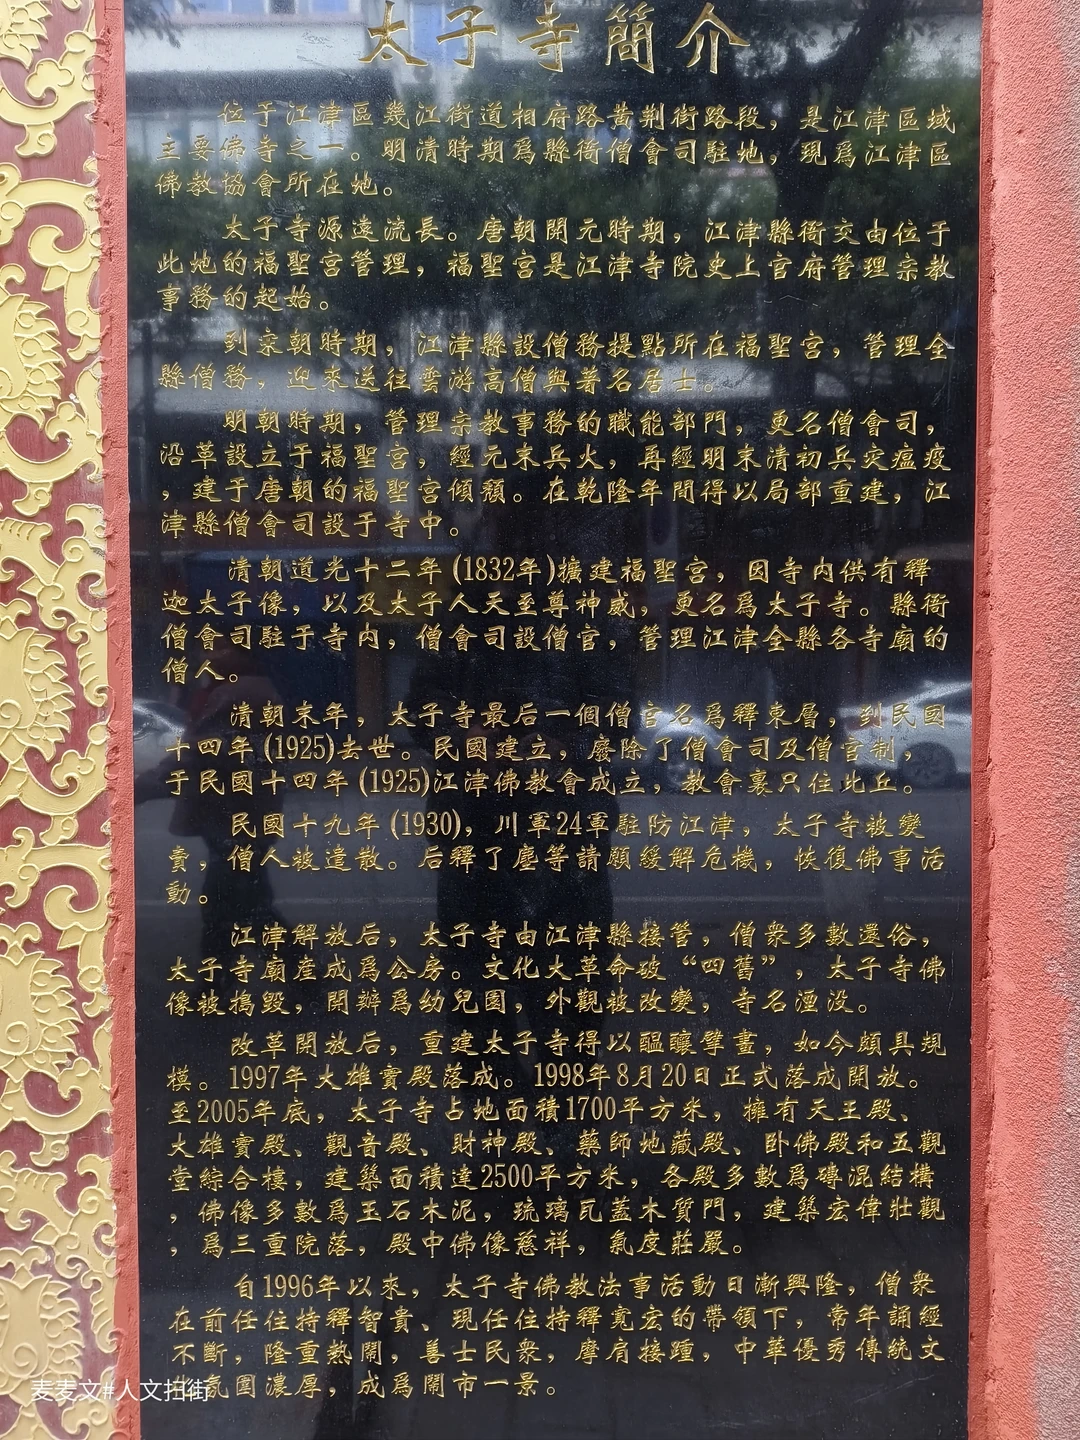 太子寺簡介
位于江津區幾江街道相府路黄荆街路段，是江津區域
主要佛寺之一。明清時期爲縣衙僧會司駐地，現爲江津區
佛教協會所在地。
太子寺源遠流長。唐朝開元時期，江津縣衙交由位于
此地的福聖宫管理，福聖宫是江津寺院史上官府管理宗教
事務的起始。
到宋朝時期，江津縣設僧務提點所在福聖宫，管理全
縣僧務，迎來送往雲游高僧與著名居士。
明朝時期，管理宗教事務的職能部門，更名僧會司，
沿革設立于福聖宫，經元末兵火，再經明末清初兵灾瘟疫
，建于唐朝的福聖宫傾頹。在乾隆年間得以局部重建，江
津縣僧會司設于寺中。
清朝道光十二年(1832年)擴建福聖宫，因寺内供有釋
迦太子像，以及太子人天至尊神威，更名爲太子寺。縣衙
僧會司駐于寺内，僧會司設僧官，管理江津全縣各寺廟的
僧人。
清朝末年，太子寺最后一個僧官名爲釋東層，到民國
十四年(1925)去世。民國建立，廢除了僧會司及僧官制，
于民國十四年(1925)江津佛教會成立，教會裏只住比丘。
民國十九年(1930)，川軍24軍駐防江津，太子寺被變
賣，僧人被遣散。后釋了塵等請願緩解危機，恢復佛事活
動。
江津解放后，太子寺由江津縣接管，僧衆多數還俗，
太子寺廟産成爲公房。文化大革命破“四舊”，太子寺佛
像被搗毁，開辦爲幼兒園，外觀被改變，寺名湮没。
改革開放后，重建太子寺得以醖釀擘畫，如今頗具規
模。1997年大雄寶殿落成。1998年8月20日正式落成開放。
至2005年底，太子寺占地面積1700平方米，擁有天王殿、
大雄寶殿、觀音殿、財神殿、藥師地藏殿、卧佛殿和五觀
堂綜合樓，建築面積達2500平方米，各殿多數爲磚混結構
，佛像多數爲玉石木泥，琉璃瓦蓋木質門，建築宏偉壯觀
，爲三重院落，殿中佛像慈祥，氣度莊嚴。
自1996年以來，太子寺佛教法事活動日漸興隆，僧衆
在前任住持釋智貴、現任住持釋寬宏的帶領下，常年誦經
不斷，隆重熱鬧，善士民衆，摩肩接踵，中華優秀傳統文
氛圍濃厚，成爲鬧市一景。
麦麦文#人文扫街